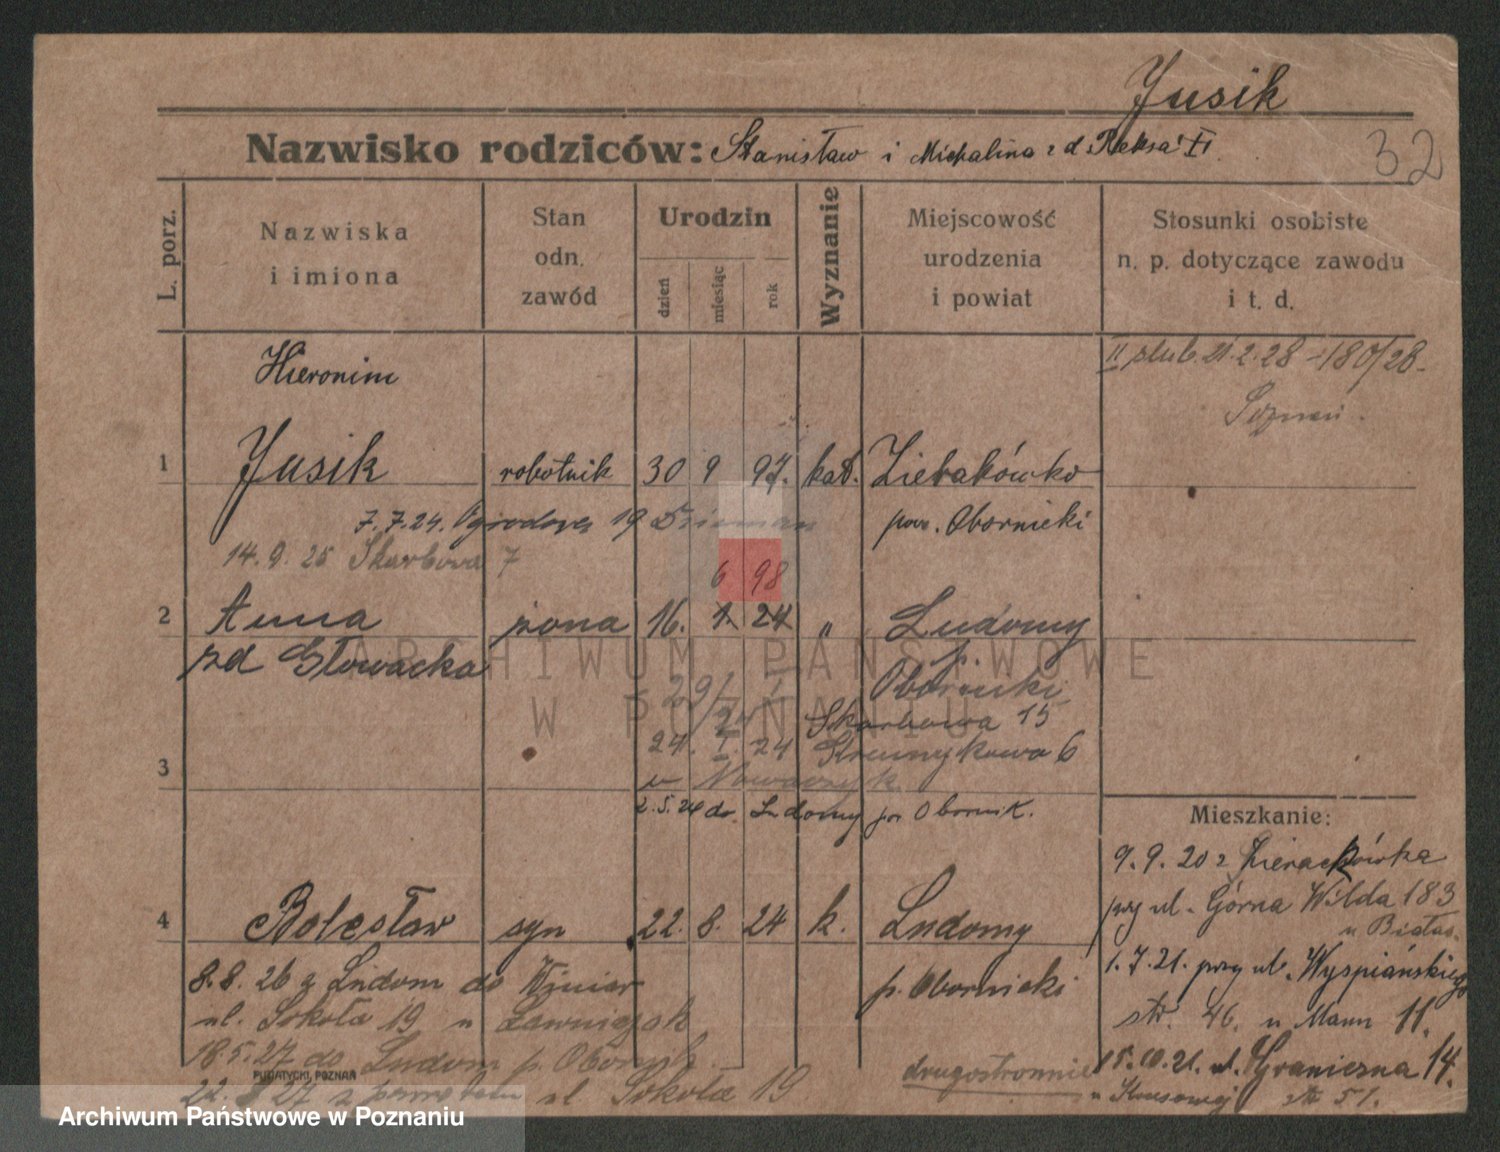 Jusik
Nazwisko rodziców: Stanisław i Michalina z d. Reksa
32
L. porz.
Nazwiska i imiona
Stan odn. zawód
Urodzin
dzień miesiąc rok
Wyznanie
Miejscowość urodzenia i powiat
Stosunki osobiste n. p. dotyczące zawodu i t. d.
II ślub 21.2.28 - 180/28 -
Poznań.
Hieronim
1 Jusik robotnik 30 9 97. kat. Zierakówko
pow. Obornicki
7.7.24. Ogrodowa 19
14.9.25 Skarbowa 7
6 98
2 Anna żona 16. 1. 24 " Ludomy
zd Głowacka p. Obornicki
ARCHIWUM PAŃSTWOWE
W POZNANIU
29/1 24 Skarbowa 15
24. I. 24 Strumykowa 6
u Nowaczyk
3
2.5.24 do Ludomy po Obornik.
Mieszkanie:
9.9.20 z Zierackówka
przy ul. Górna Wilda 183
u Białas.
4 Bolesław syn 22. 8. 24 k. Ludomy
p. Obornicki
1.7.21. przy ul. Wyspiańskiego
str. 46. u Mann 11.
8.8.26 z Ludom do Winiar
ul. Sokoła 19 u Ławniczak
18.5.27 do Ludom p. Obornik
PUDATYCKI, POZNAŃ
22. 27 z powrotem ul. Sokoła 19
drugostronnie
15.10.21. ul. Graniczna 14.
51.
Archiwum Państwowe w Poznaniu